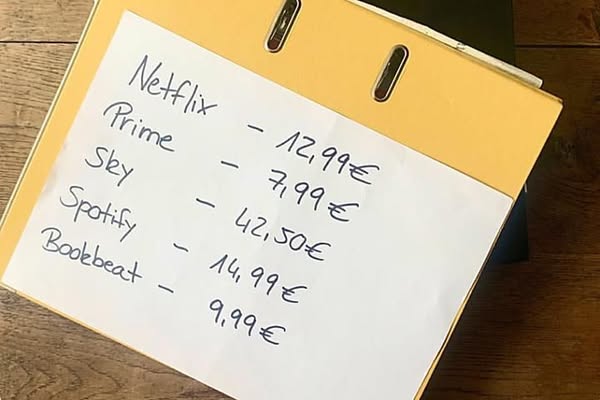 Netflix - 12,99€
Prime - 7,99€
Sky - 42,50€
Spotify - 14,99€
Bookbeat - 9,99€